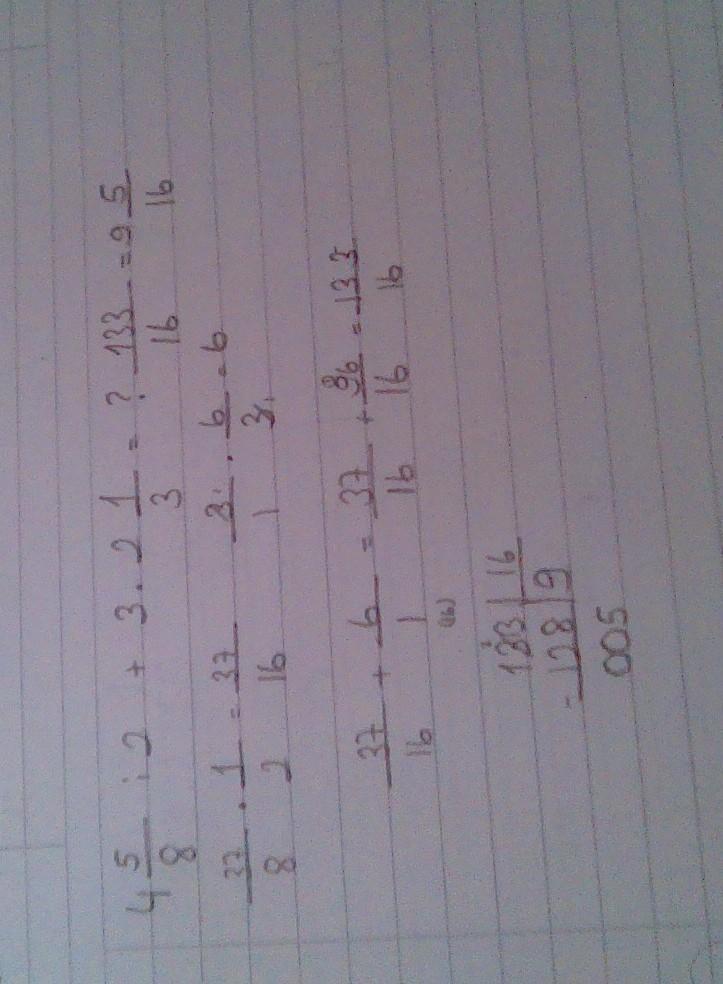 4 5/8 : 2 + 3 . 2 1/3 = ? 133/16 = 9 5/16
37/8 . 1/2 = 37/16 3/1 . 6/3 = 6
37/16 + 6/1 = 37/16 + 96/16 = 133/16
(16)
133 | 16
-128 | 9
005